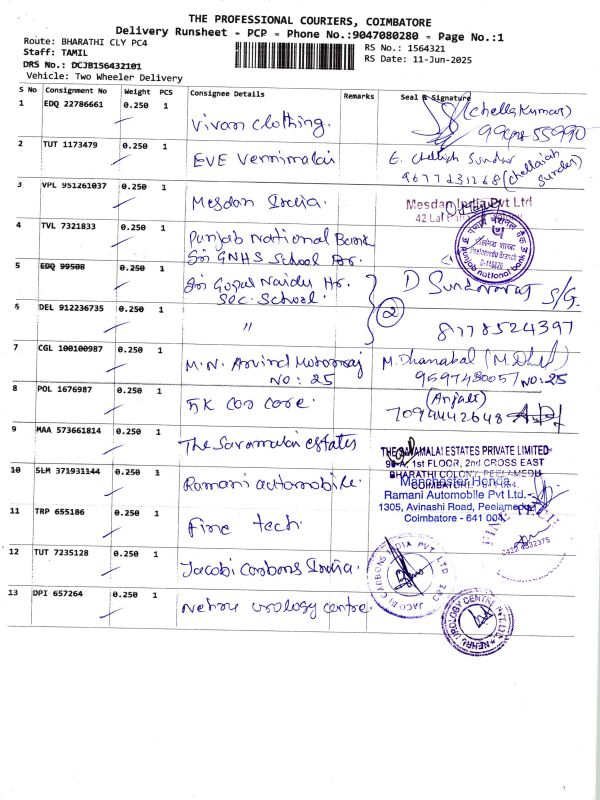 THE PROFESSIONAL COURIERS, COIMBATORE
Delivery Runsheet - PCP - Phone No.:9047080280 - Page No.:1
Route: BHARATHI CLY PC4
RS No.: 1564321
Staff: TAMIL
RS Date: 11-Jun-2025
DRS No.: DCJB156432101
Vehicle: Two Wheeler Delivery
S No Consignment No Weight PCS Consignee Details Remarks Seal & Signature
1 EDQ 22786661 0.250 1 Vivan Clothing. (Chella Kumar)
55990
2 TUT 1173479 0.250 1 EVE Vermimalai E. Chelliah Sundar
9677231268 (chellaiah Sundar)
3 VPL 951261037 0.250 1 Mesdan India. Mesdan India Pvt Ltd
42 Lal
4 TVL 7321833 0.250 1 Punjab National Bank
Sri GNHS School Br.
punjab national bank
5 EDQ 99508 0.250 1 Sri Gopal Naidu Hr. Sec. School. D Sundararaj S/G.
6 DEL 912236735 0.250 1 〃 2 8778524397
7 CGL 100100987 0.250 1 M.N. Arvind M. Dhanabal
NO: 25 9597480057 NO: 25
8 POL 1676987 0.250 1 5K Car Care. (Anjali)
7094442648
9 MAA 573661814 0.250 1 The Saramalai estates THE SARAMALAI ESTATES PRIVATE LIMITED
1st FLOOR, 2nd CROSS EAST
BHARATHI COLONY, PEELAMEDU
COIMBATORE
10 SLM 371931144 0.250 1 Ramani automobile. Manchester Honda
Ramani Automobile Pvt Ltd.
1305, Avinashi Road, Peelamedu
Coimbatore - 641 004.
11 TRP 655186 0.250 1 Fine tech. FINE TECH
0422 4332375
12 TUT 7235128 0.250 1 Jacobi Carbons India. JACOBI CARBONS INDIA PVT. LTD
CBE
13 DPI 657264 0.250 1 Nehru urology centre. NEHRU UROLOGY CENTRE PVT.LTD.